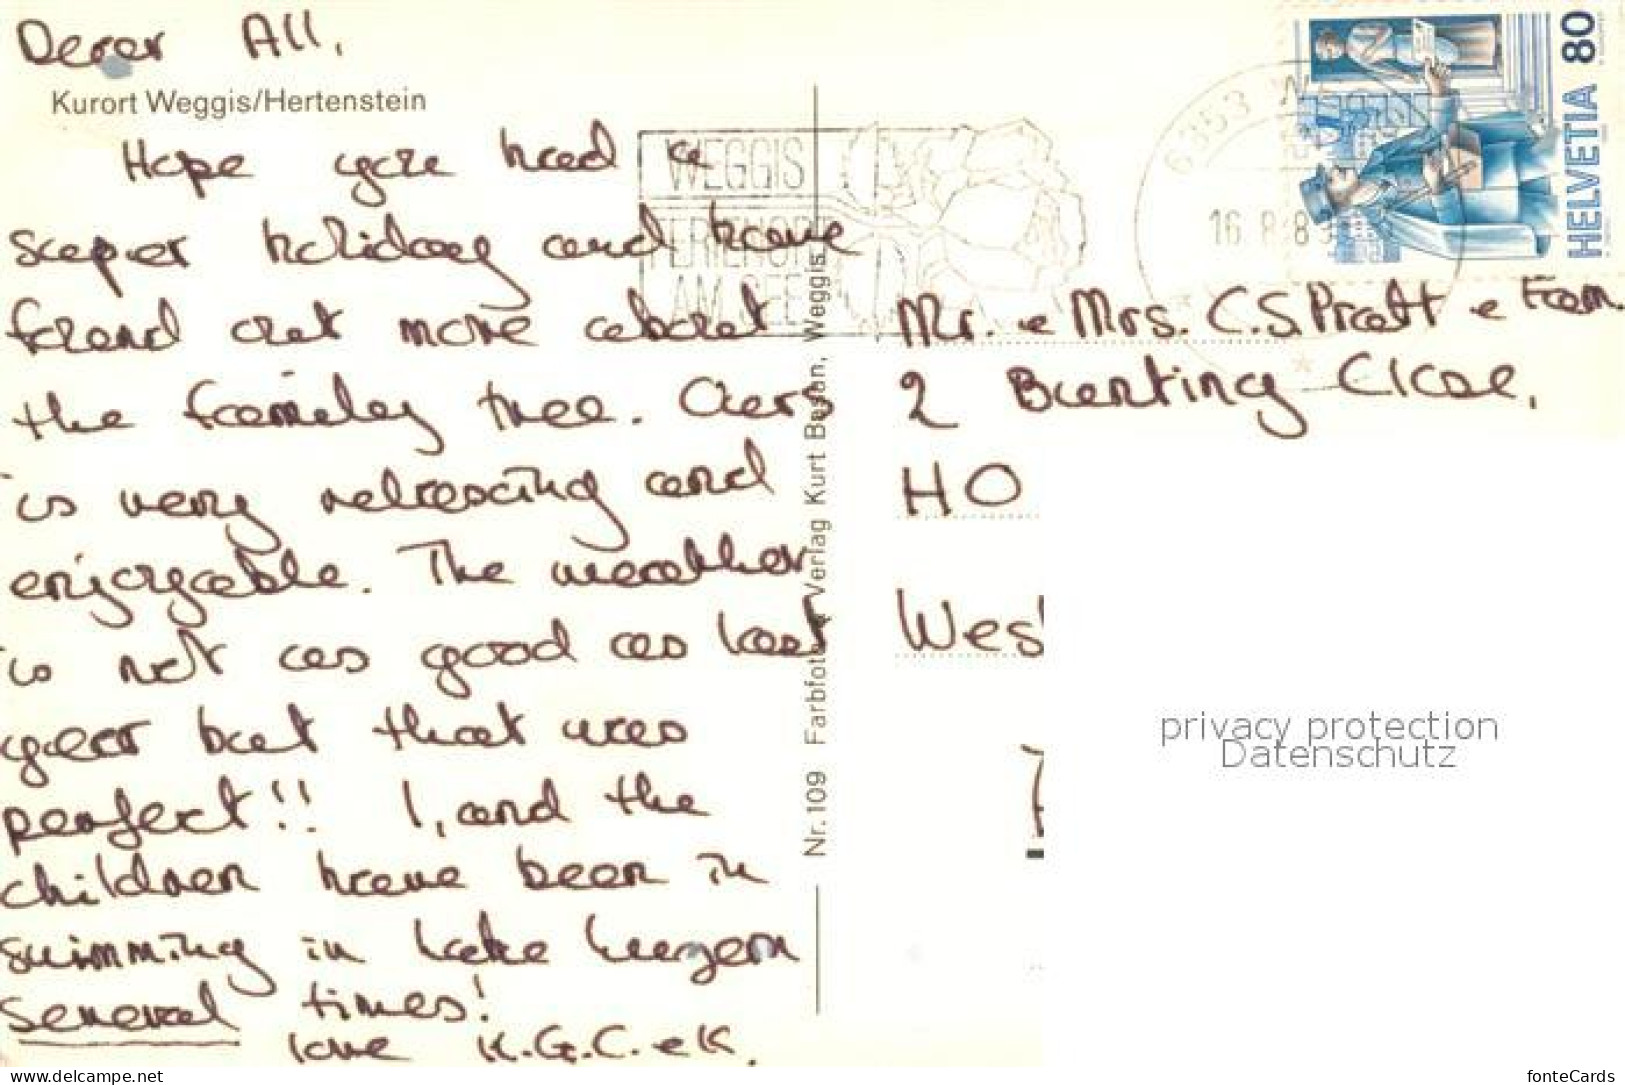 Dear All,
Kurort Weggis/Hertenstein
Hope you had a
super holiday and have
found out more about
the family tree. Ours
is very relaxing and
enjoyable. The weather
is not as good as last
year but that was
perfect!! I, and the
children have been in
swimming in Lake Luzern
several times!
love K.G.C. e K.
Nr. 109 Farbfoto u. Verlag Kurt Beson, Weggis
WEGGIS
FERIENORT
AM SEE
6353
16.8.8
HELVETIA 80
Mr. e Mrs. C.S. Pratt e Fam.
2 Bunting Close,
HO
Wes
privacy protection
Datenschutz
www.delcampe.net
fonteCards